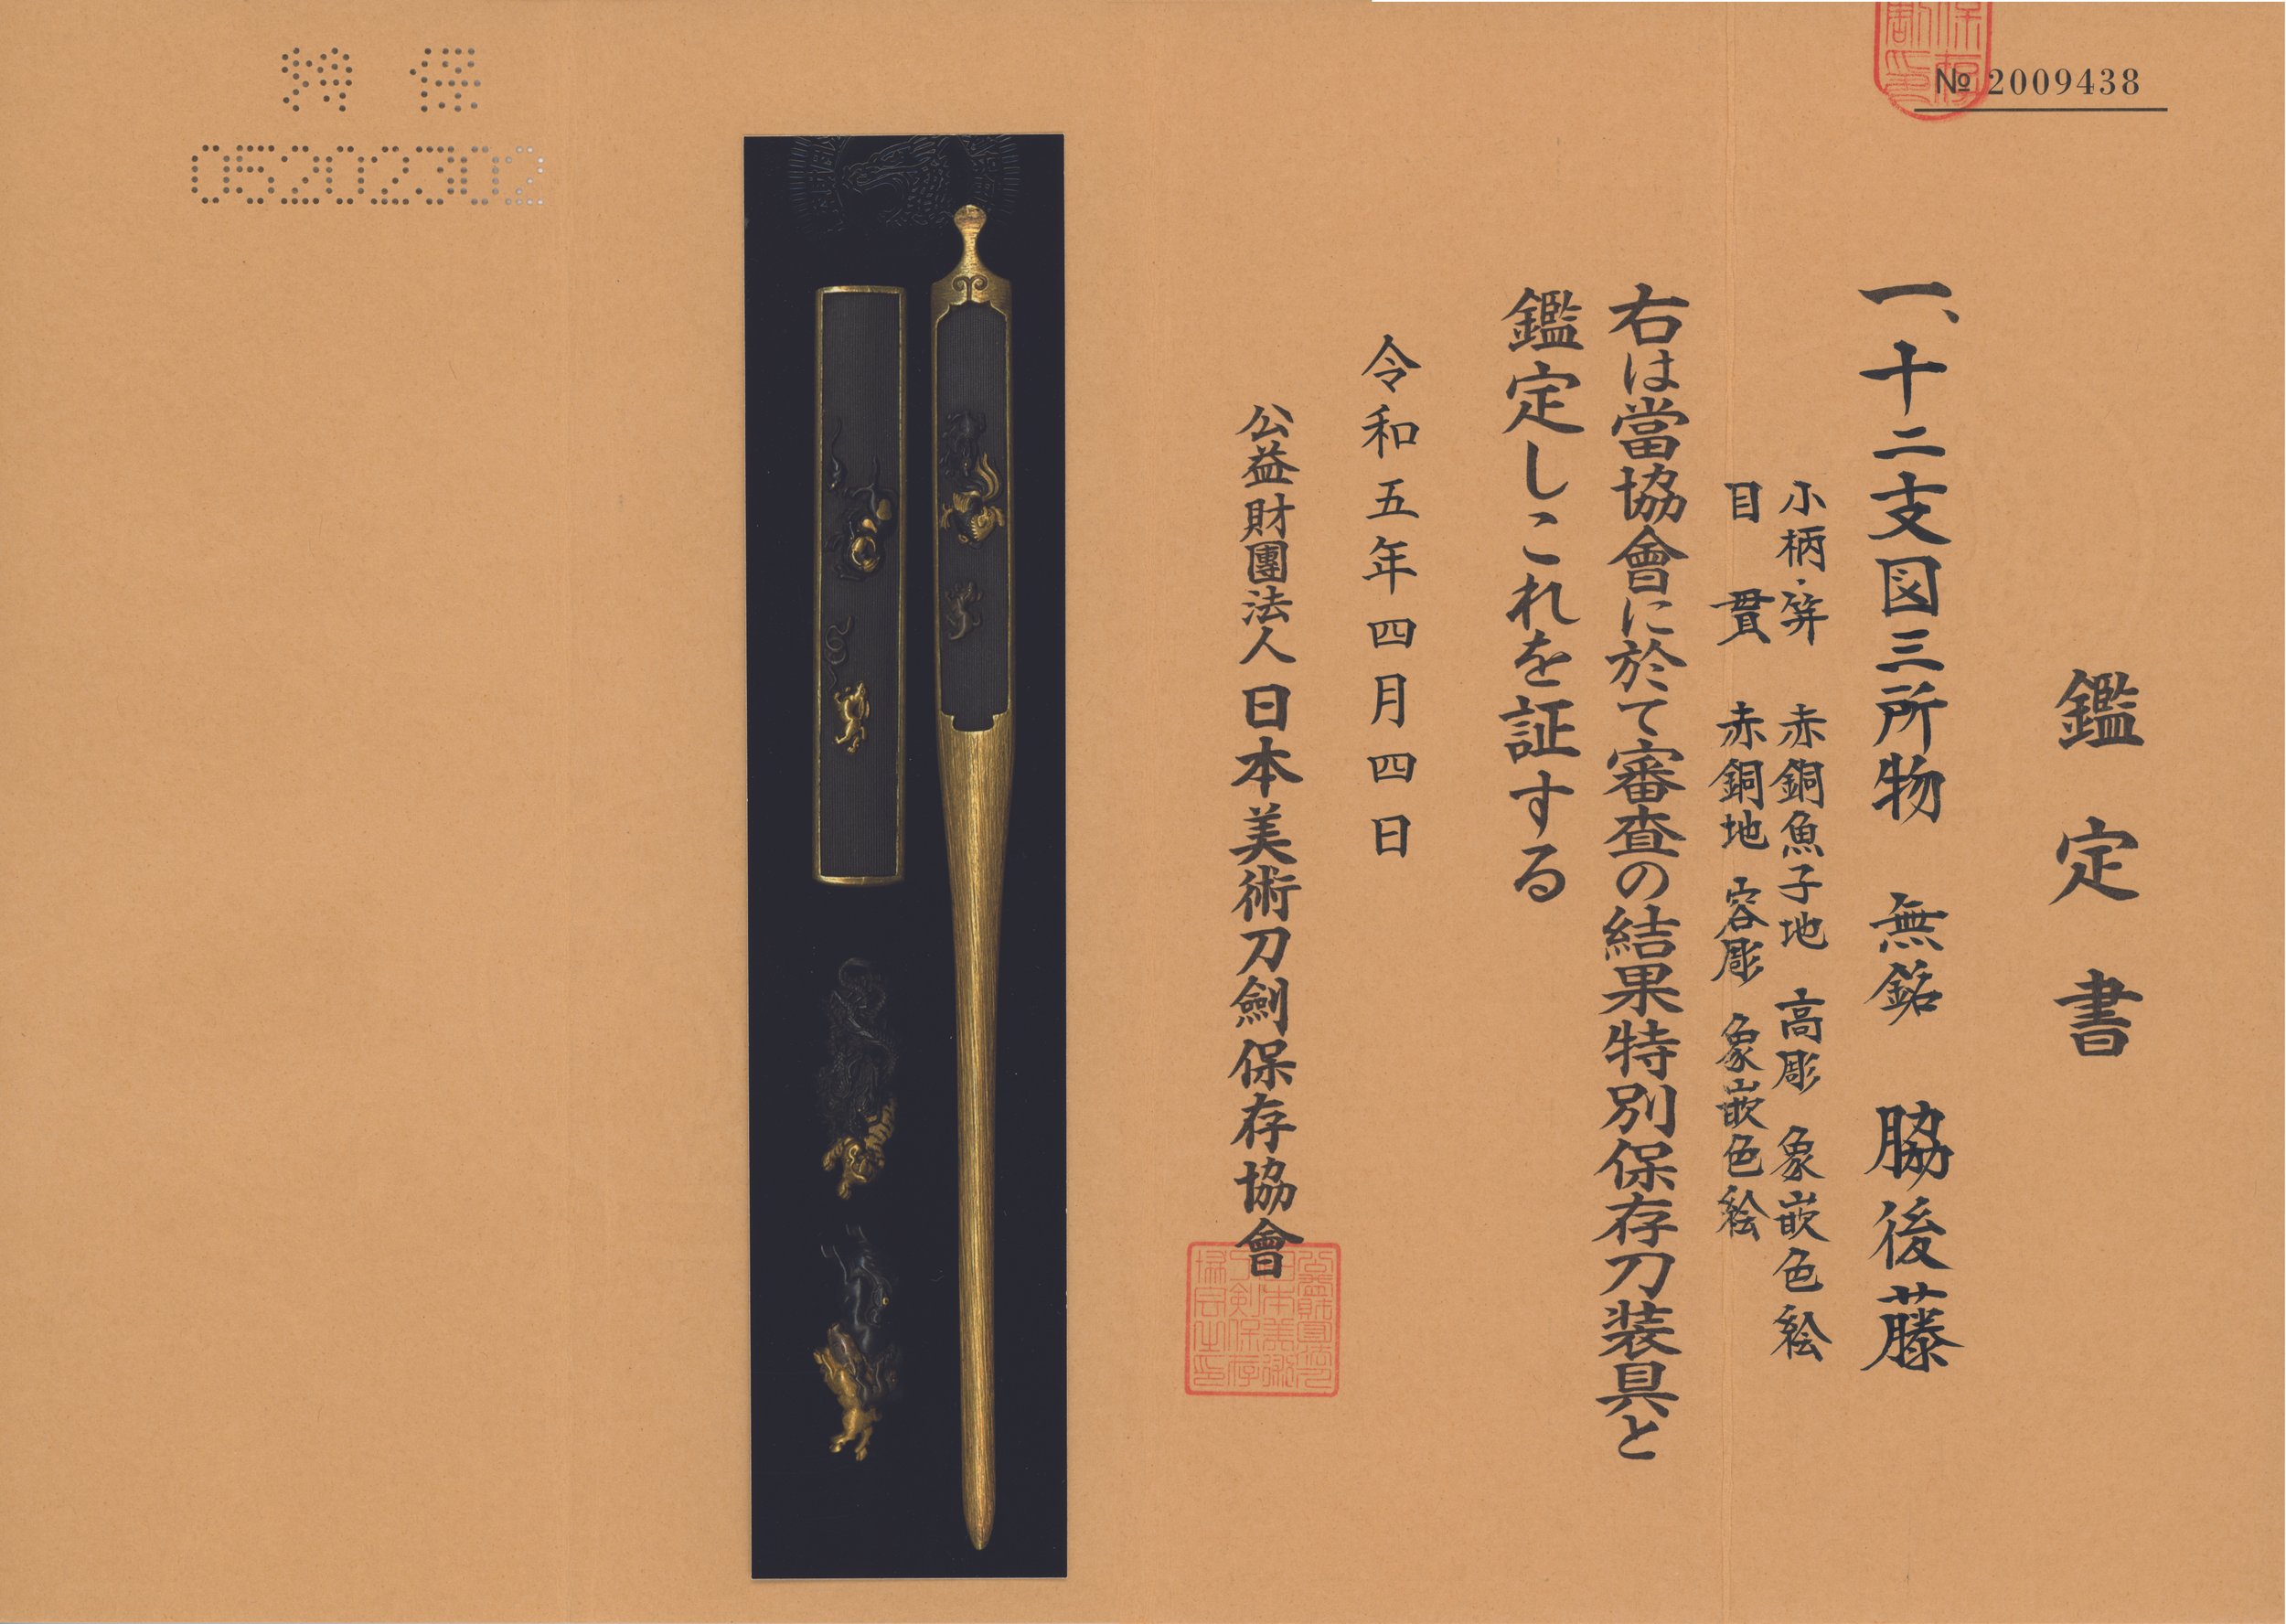 № 2009438
鑑定書
一、十二支図三所物 無銘 脇後藤
小柄・笄 赤銅魚子地 高彫 象嵌色絵
目貫 赤銅地 容彫 象嵌色絵
右は當協會に於て審査の結果特別保存刀装具と
鑑定しこれを証する
令和五年四月四日
公益財團法人日本美術刀劍保存協會
特保
0520230